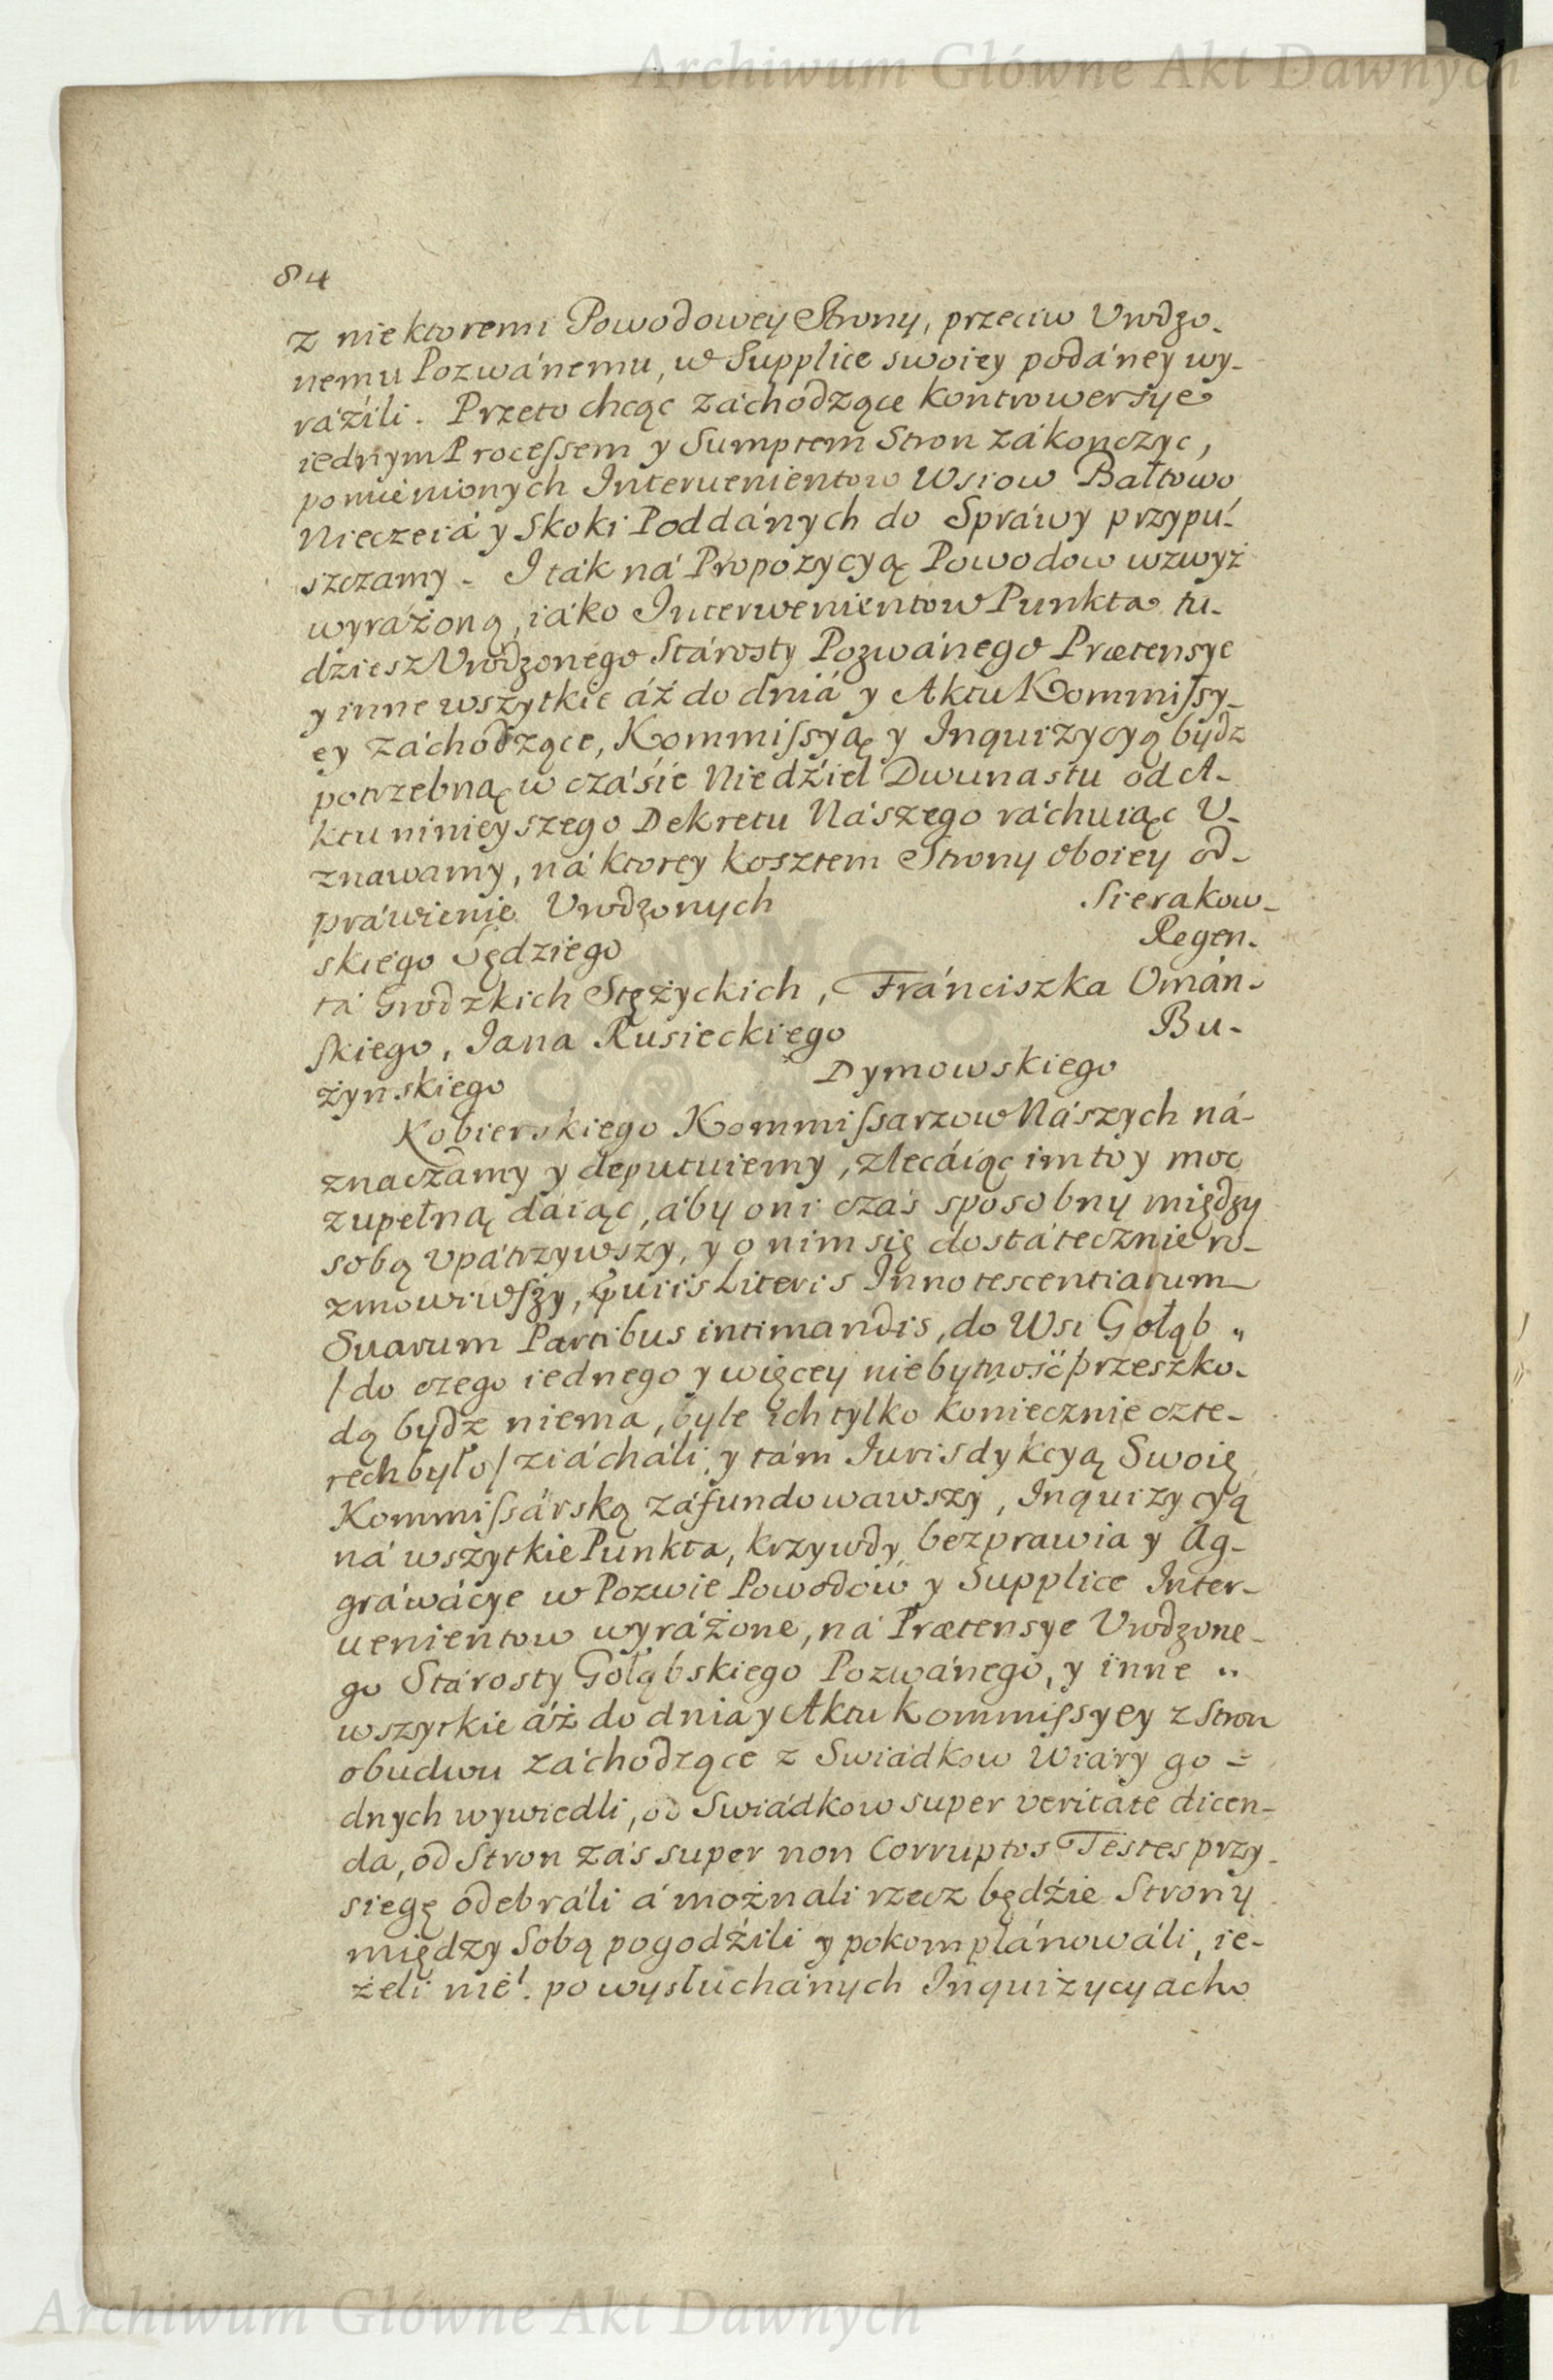 Archiwum Główne Akt Dawnych
84
z niektoremi Powodowey Strony, przeciw Vrodzo-
nemu Pozwánemu, w Supplice swoiey podáney wy-
raźili. Przeto chcąc záchodzące kontrowersye
iednym Processem y Sumptem Stron zákonczyc,
pomienionych Interuenientow Wsiow Bałtowo
Nieczeiá y Skoki Poddánych do Spráwy przypu-
szczamy. I ták ná Propozycyą Powodow wzwyż
wyráżoną, iáko Interwenientow Punkta tu-
dziesz Vrodzonego Stárosty Pozwánego Prætensye
y inne wszytkie áż do dniá y Aktu Kommissy-
ey záchodzące, Kommissyą y Inquizycyą bydz
potrzebną w czáśie Niedźiel Dwunastu od A-
ktu ninieyszego Dekretu Nászego ráchuiąc V-
znawamy, ná ktorey kosztem Strony oboiey od-
práwienie Vrodzonych Sierakow-
skiego Sędziego Regen-
tá Grodzkich Stężyckich, Fránciszka Omán-
skiego, Jana Rusieckiego Bu-
żynskiego Dymowskiego
Kobierskiego Kommissarzow Nászych ná-
znaczamy y deputuiemy, zlecáiąc im to y moc
zupełną dáiąc, áby oni czás sposobny między
sobą vpátrzywszy, y o nim się dostátecznie ro-
zmowiwszy, Literis Innotescentiarum
Suarum Partibus intimandis, do Wsi Gołąb
/do czego iednego y więcey niebytność przeszko-
dą bydz niema, byle ich tylko koniecznie czte-
rech było/ ziácháli, y tám Iurisdykcyą Swoię
Kommissárską záfundowawszy, Inquizycyą
ná wszytkie Punkta, krzywdy bezprawia y Ag-
gráwácye w Pozwie Powodow y Supplice Inter-
uenientow wyráżone, ná Prætensye Vrodzone-
go Stárosty Gołąbskiego Pozwánego, y inne
wszytkie áż do dnia y Aktu Kommissyey z Stron
obudwu záchodzące z Swiádkow Wiáry go=
dnych wywiedli, od Swiádkow super veritate dicen-
da, od Stron zás super non Corruptos Testes przy-
sięgę odebráli á możnali rzecz będźie Strony
między Sobą pogodźili y pokomplánowáli, ie-
żeli nie!. po wysłuchánych Inquizycyach
Archiwum Główne Akt Dawnych